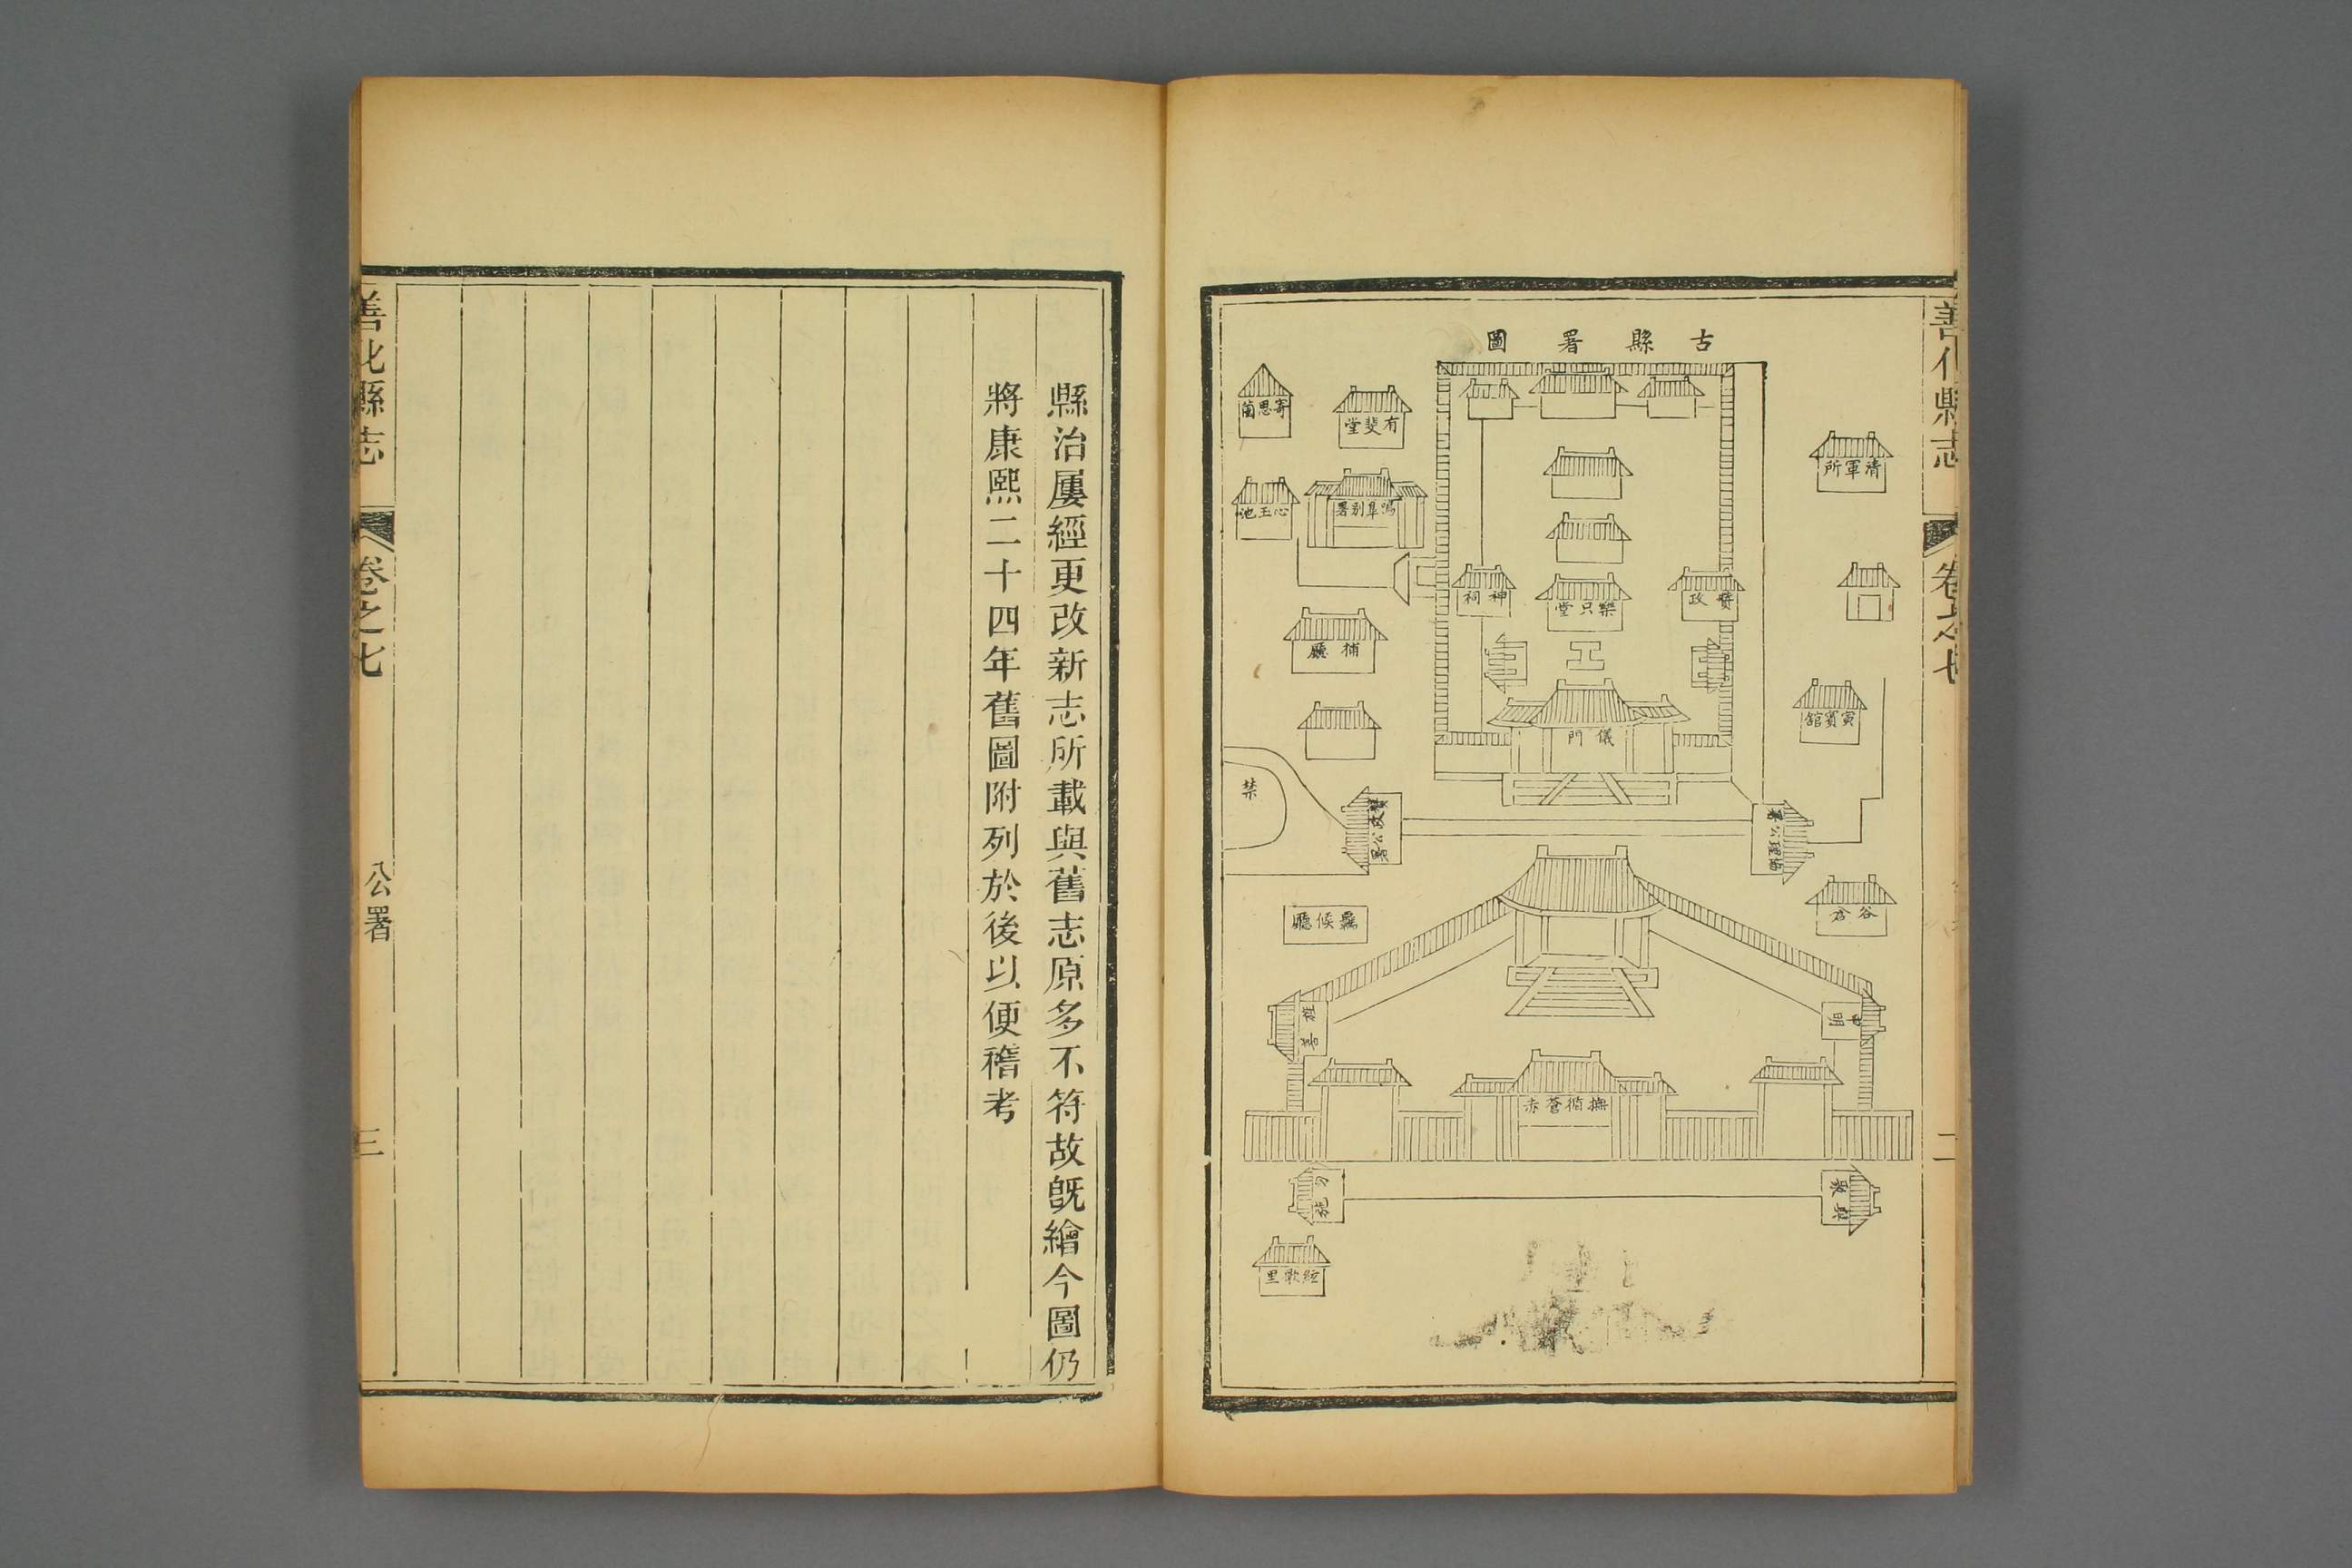 善化縣志
卷之七
二
古縣署圖
寄思蘭
有斐堂
清軍所
心玉池
鳴阜別署
神祠
樂只堂
贊政
捕廳
寅賓館
儀門
禁
贊政公署
谷倉
候廳
旌善
申明
撫循蒼赤
絃歌里
縣治屢經更改新志所載與舊志原多不符故旣繪今圖仍
將康熙二十四年舊圖附列於後以便稽考
善化縣志
卷之七
公署
三